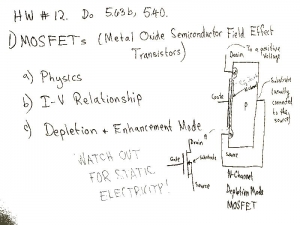 HW #12. Do 5.63b, 5.40.
1) MOSFETs (Metal Oxide Semiconductor Field Effect
Transistors)
a) Physics
b) I-V Relationship
c) Depletion + Enhancement Mode
WATCH OUT
FOR STATIC
ELECTRICITY!
Drain
Gate
Substrate
Source
Drain
To a positive
Voltage
Substrate
(usually
connected
to the
source)
Gate
P
Source
N-Channel
Depletion Mode
MOSFET